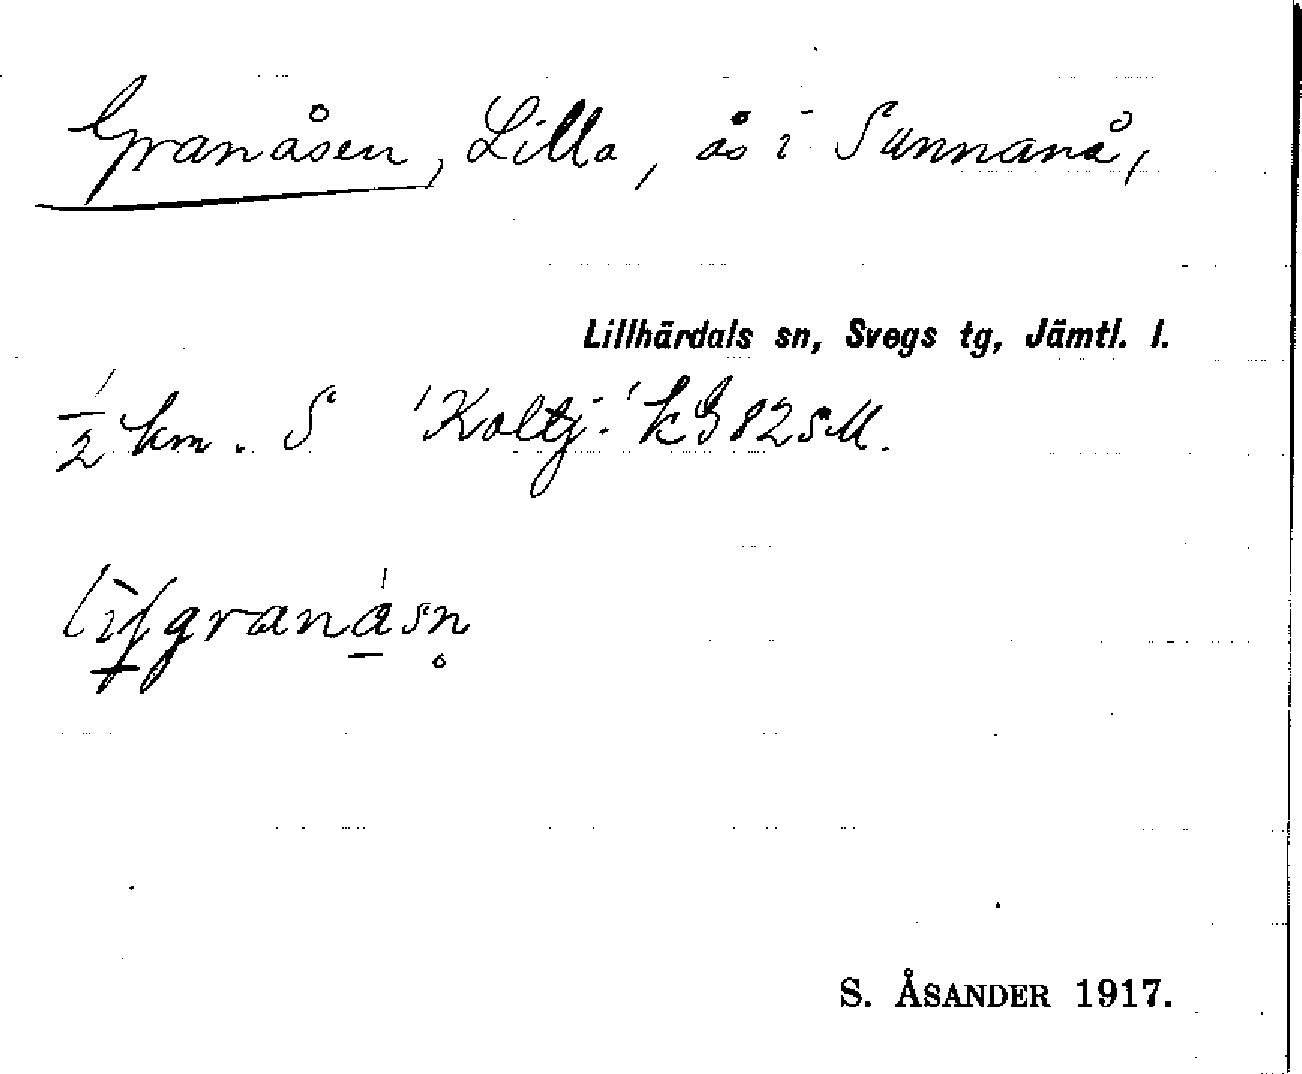 Granåsen, Lilla, ås i Sunnanå,
Lillhärdals sn, Svegs tg, Jämtl. l.
1/2 km. S 'Koltj.' kG 82 SM.
S. ÅSANDER 1917.